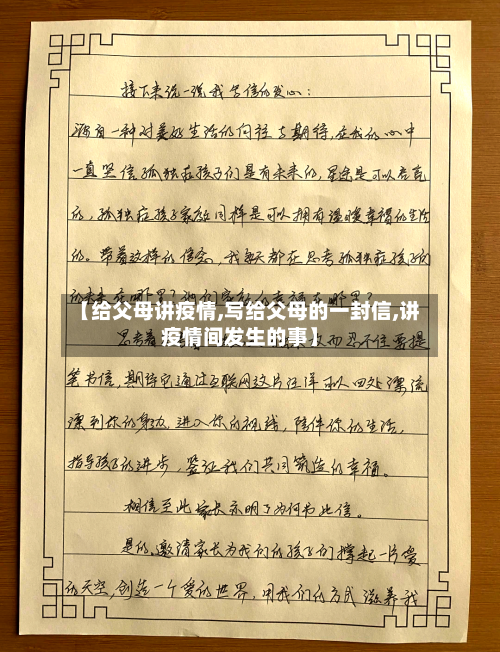 接下来说一说我写信的发心:
源自一种对美好生活的向往与期待,在我的心中
一直坚信孤独症孩子们是有未来的,星途是可以走宽
的,孤独症孩子家庭同样是可以拥有温暖幸福的生活
的。带着这样的信念,我每天都在思考孤独症孩子的
【给父母讲疫情,写给父母的一封信,讲
疫情间发生的事】
思考着 忍不住要提
笔书信,期待它通过互联网这片汪洋可以四处漂流
漂到你的身边,进入你的视线,陪伴你的生活,
指导孩子的进步,签证我们共同筑造的幸福。
相信至此家长亦明了为何书此信。
是的,邀请家长为我们的孩子们撑起一片爱
的天空,创造一个爱的世界,用我们的方式滋养我